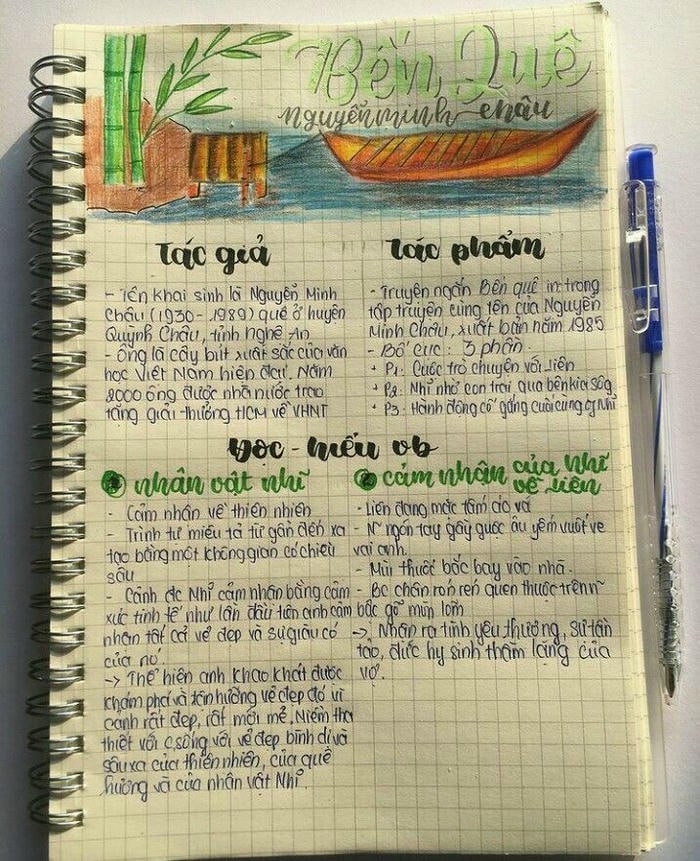 Bến Quê
nguyễn minh châu
Tác giả
- Tên khai sinh là Nguyễn Minh
Châu (1930-1989) quê ở huyện
Quỳnh Châu, tỉnh nghệ An
- ông là cây bút xuất sắc của văn
học Việt Nam hiện đại. Năm
2000 ông được nhà nước trao
tặng giải thưởng HCM về VHNT
Tác phẩm
- Truyện ngắn Bến quê in trong
tập truyện cùng tên của Nguyễn
Minh Châu, xuất bản năm 1985
- Bố cục: 3 phần
+ P1: Cuộc trò chuyện với Liên
+ P2: Nhĩ nhờ con trai qua bên kia sông
+ P3: Hành động cố gắng cuối cùng of Nhĩ
Đọc - hiểu vb
1 nhân vật nhĩ
- Cảm nhận về thiên nhiên
- Trình tự miêu tả từ gần đến xa
tạo bằng một không gian có chiều
sâu
- Cảnh đc Nhĩ cảm nhận bằng cảm
xúc tinh tế như lần đầu tiên anh cảm
nhận tất cả vẻ đẹp và sự giàu có
của nó.
-> Thể hiện anh khao khát được
khám phá và tận hưởng vẻ đẹp đó vì
cảnh rất đẹp, rất mới mẻ. Niềm tha
thiết với c.sống với vẻ đẹp bình dị và
sâu xa của thiên nhiên, của quê
hương và của nhân vật Nhĩ.
2 cảm nhận của Nhĩ
về liên
- Liên đang mặc tấm áo vá
- N~ ngón tay gầy guộc âu yếm vuốt ve
vai anh.
- Mùi thuốc bắc bay vào nhà.
- Bc chân rón rén quen thuộc trên n~
bậc gỗ mòn lõm
-> Nhận ra tình yêu thương, sự tần
tảo, đức hy sinh thầm lặng của
vợ.